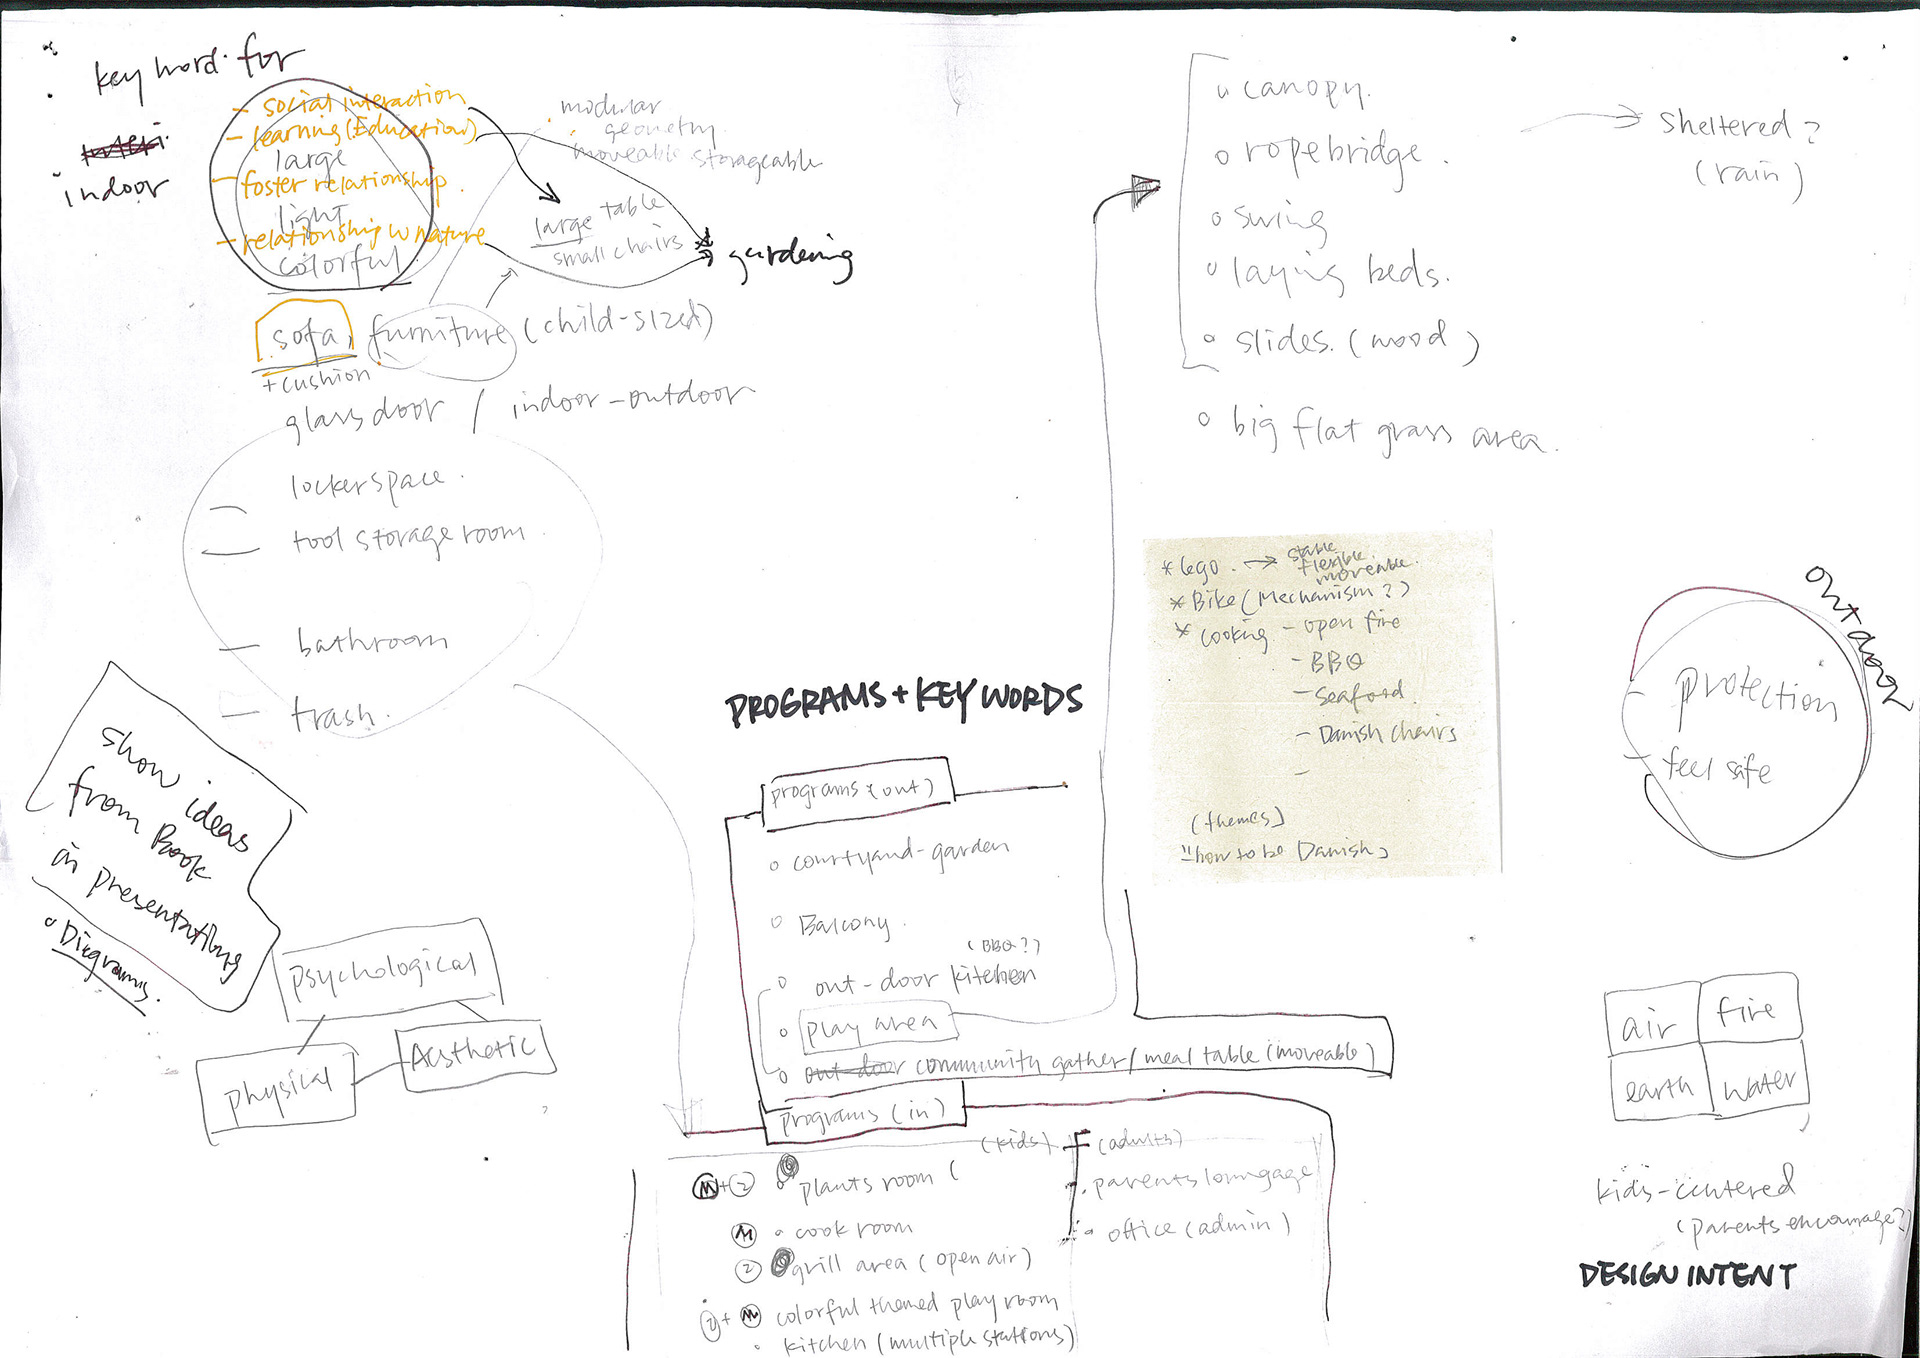 keyword for
indoor
– social interaction
– learning (Education)
large
– foster relationship
light
– relationship w nature
colorful
modular
geometry
moveable storageable
large table
small chairs
gardening
sofa, furniture (child-sized)
+ cushion
glass door / indoor-outdoor
lockerspace.
tool storage room
– bathroom
– trash.
show ideas
from Book
in presentating
o Diagrams.
psychological
physical
Aesthetic
PROGRAMS + KEY WORDS
programs (out)
o courtyand-garden
o Balcony.
(BBQ?)
o out-door kitchen
o play area
o out-door community gather / meal table (moveable)
programs (in)
(kids)
M+2 o plants room (
M o cook room
2 o grill area (open air)
2+M colorful themed play room
o kitchen (multiple stations)
(adults)
parents loungage
o office (admin)
o canopy.
o ropebridge.
o swing
o laying beds.
o slides. (wood)
o big flat grass area.
→ sheltered?
(rain)
* Lego. → stable
flexible.
moveable.
* Bike (Mechanism?)
* cooking – open fire
– BBQ
– seafood
– Danish chairs
–
(themes)
"how to be Danish"
outdoor
– protection
– feel safe
air fire
earth water
kids-centered
(parents encourage?)
DESIGN INTENT